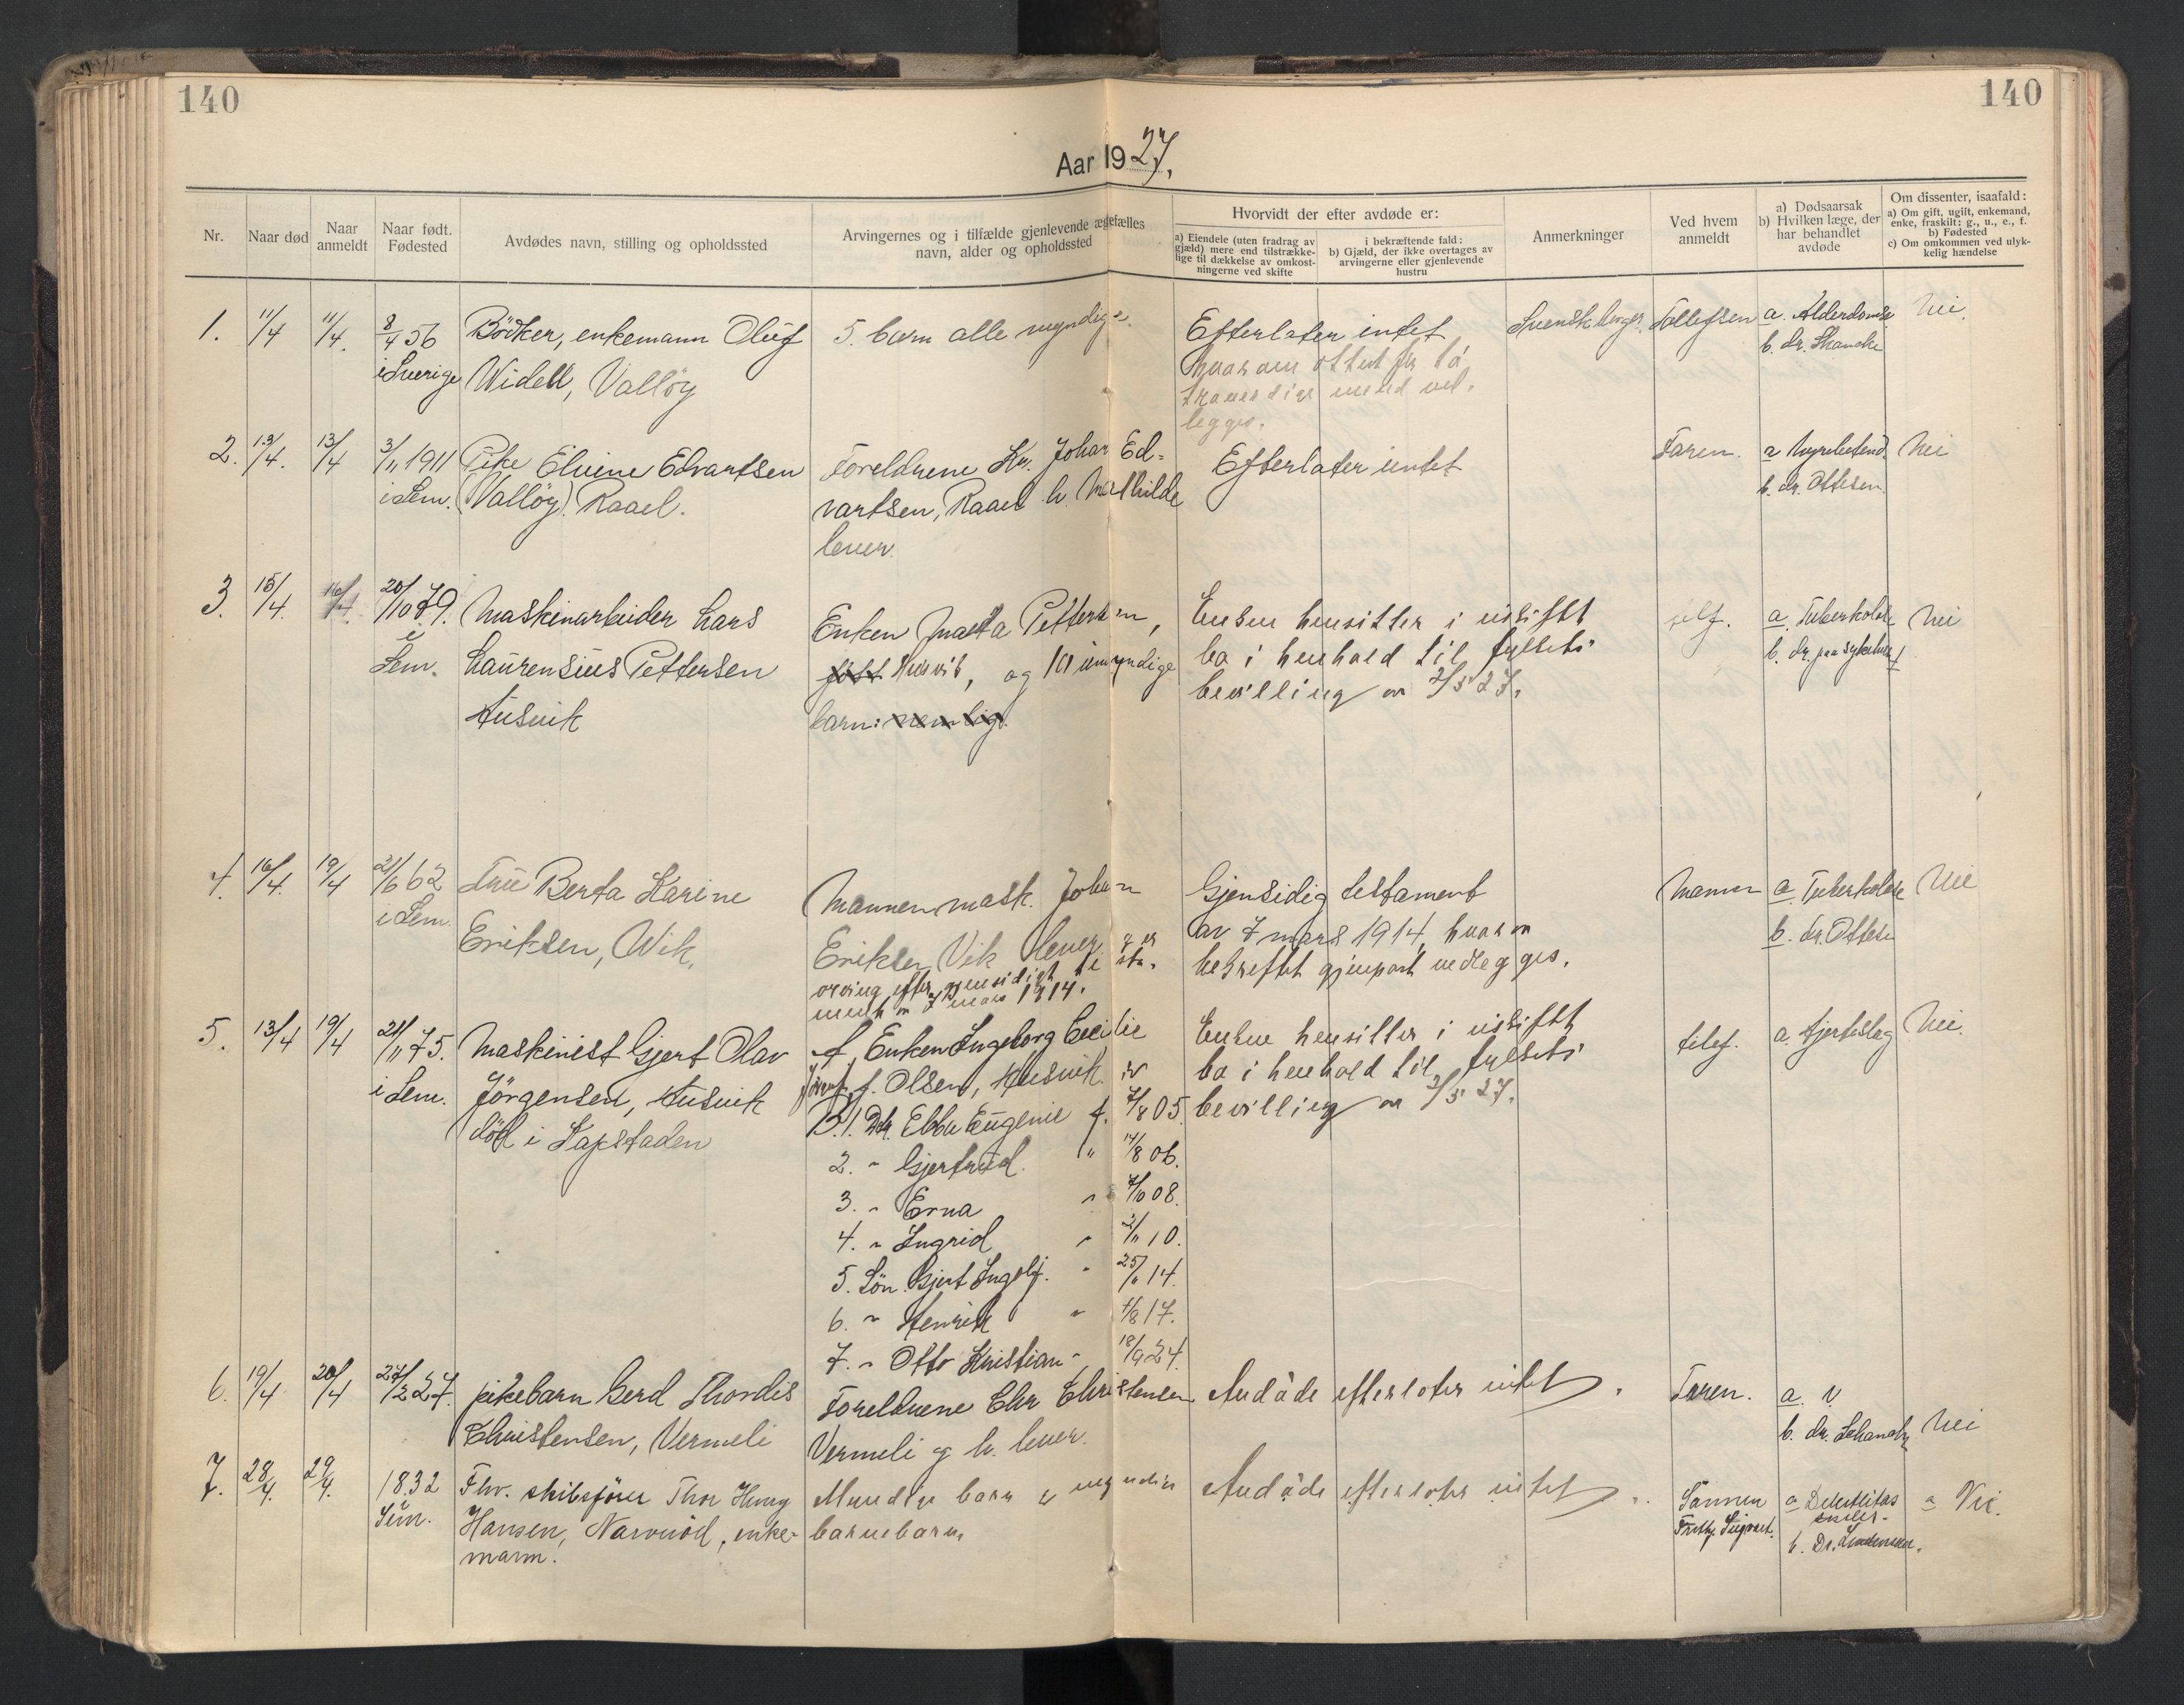 140
140
Aar 1927.
Nr.
Naar død
Naar
anmeldt
Naar født.
Fødested
Avdødes navn, stilling og opholdssted
Arvingernes og i tilfælde gjenlevende ægtefælles
navn, alder og opholdssted
Hvorvidt der efter avdøde er:
a) Eiendele (uten fradrag av
gjæld) mere end tilstrække-
lige til dækkelse av omkost-
ningerne ved skifte
i bekræftende fald:
b) Gjæld, der ikke overtages av
arvingerne eller gjenlevende
hustru
Anmerkninger
Ved hvem
anmeldt
a) Dødsaarsak
b) Hvilken læge, der
har behandlet
avdøde
Om dissenter, isaafald:
a) Om gift, ugift, enkemand,
enke, fraskilt: g., u., e., f.
b) Fødested
c) Om omkommen ved ulyk-
kelig hændelse
1.
11/4
11/4.
8/4 56
i Sverige
Bödker, enkemann Oluf
Widell, Vallöy
5. barn alle myndige.
Efterlater intet
hvorom attest fra to
troverdige menn ved-
legges.
Svensk borger.
Tollefsen
a. Alderdomss
b. dr. Skancke
Nei.
2.
13/4.
13/4
3/11 1911
i Sem.
Pike Elvine Edvartsen
(Vallöy) Raael.
Foreldrene Kr. Johan Ed-
vartsen, Raael h. Mathilde
lever.
Efterlater intet
Faren.
a. Nyrebetend.
b. dr. Ottesen.
Nei
3.
15/4.
16/4.
20/10 79.
i
Sem.
Maskinarbeider Lars
Laurensius Pettersen
Husvik
Enken Marta Pettersen,
født Husvik, og 10 umyndige
barn: nemlig.
Enken hensitter i uskiftet
bo i henhold til fylkets
bevilling av 2/5 27.
telf.
a. Tuberkolose
b. dr. paa sykehuset
Nei
4.
16/4.
19/4
21/6 62
i Sem.
Frue Berta Karine
Eriksen, Wik.
Mannen mask. Johan
Eriksen Vik lever, er
arving efter gjensidigt testa-
ment av 7 mars 1914.
Gjensidig testament
av 7 mars 1914, hvorav
bekreftet gjenpart vedlegges.
Mannen
a. Tuberkolose
b. dr. Ottesen
Nei
5.
13/4
19/4
21/11 75.
i Sem.
Maskinist Gjert Olav
Jörgensen, Husvik
död i Kapstaden
A, Enken Ingeborg Cecilie
f. Olsen, Husvik.
B. 1. Dtr. Ebba Eugenie f. 7/8 05.
2. " Gjertrud. " 14/8 06.
3. " Erna " 7/10 08.
4. " Ingrid " 2/11 10.
5. Sön Gjert Ingolf. " 25/11 14.
6. " Henrik " 4/8 17.
7. " Otto Kristian " 18/9 24.
Enken hensitter i uskiftet
bo i henhold til fylkets
bevilling av 2/5 27.
telef.
a. Hjerteslag
Nei.
6.
19/4
20/4
27/2 27.
pikebarn Gerd Thordis
Christensen, Vermeli
Foreldrene Chr Christensen
Vermeli og h. lever.
Avdöde efterlater intet.
Faren.
a. ?
b. dr. Schandy
Nei
7.
28/4.
29/4.
1832
Sem.
Fhv. skibsfører Thor
Hansen, Narverød, enke-
mann.
Myndige barn og myndige
barnebarn.
Avdöde efterlater intet.
Sønnen
Sigvart.
a. Debilitas
senilis.
b. Dr.
a Nei.